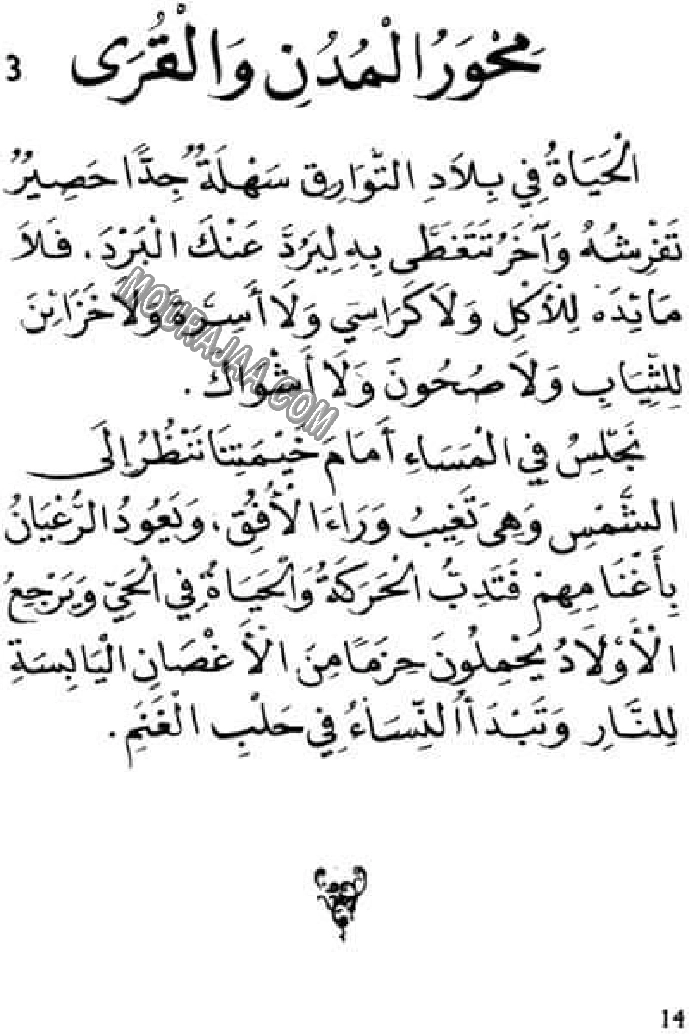 3
مَحْوَرُ الْمُدُنِ وَالْقُرَى
الْحَيَاةُ فِي بِلَادِ التَّوَارِقِ سَهْلَةٌ جِدًّا حَصِيرٌ
تَفْرِشُهُ وَآخَرُ تَتَغَطَّى بِهِ لِيَرُدَّ عَنْكَ الْبَرْدَ. فَلَا
مَائِدَةَ لِلْأَكْلِ وَلَا كَرَاسِي وَلَا أَسِرَّةَ وَلَا خَزَائِنَ
لِلثِّيَابِ وَلَا صُحُونَ وَلَا أَشْوَاكَ.
نَجْلِسُ فِي الْمَسَاءِ أَمَامَ خَيْمَتِنَا نَنْظُرُ إِلَى
الشَّمْسِ وَهِيَ تَغِيبُ وَرَاءَ الْأُفُقِ، وَيَعُودُ الرُّعْيَانُ
بِأَغْنَامِهِمْ فَتَدِبُّ الْحَرَكَةُ وَالْحَيَاةُ فِي الْحَيِّ وَيَرْجِعُ
الْأَوْلَادُ يَحْمِلُونَ حِزَمًا مِنَ الْأَغْصَانِ الْيَابِسَةِ
لِلنَّارِ وَتَبْدَأُ النِّسَاءُ فِي حَلْبِ الْغَنَمِ.
MOURAJAA.COM
14